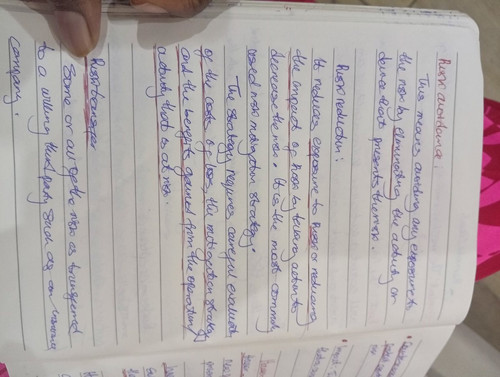 Risk avoidance.
This means avoiding any exposure to
the risk by eliminating the activity or
device that presents the risk.
Risk reduction:
It reduces exposure to risk or reducing
the impact of risk by taking action to
decrease the risk. It is the most commonly
used risk mitigation strategy.
The strategy requires careful evaluation
of the costs of risk, the mitigation strategy
and the benefits gained from the operation/
activity that is at risk.
Risk transfer
Some or all of the risk is transferred
to a willing third party such as an insurance
company.